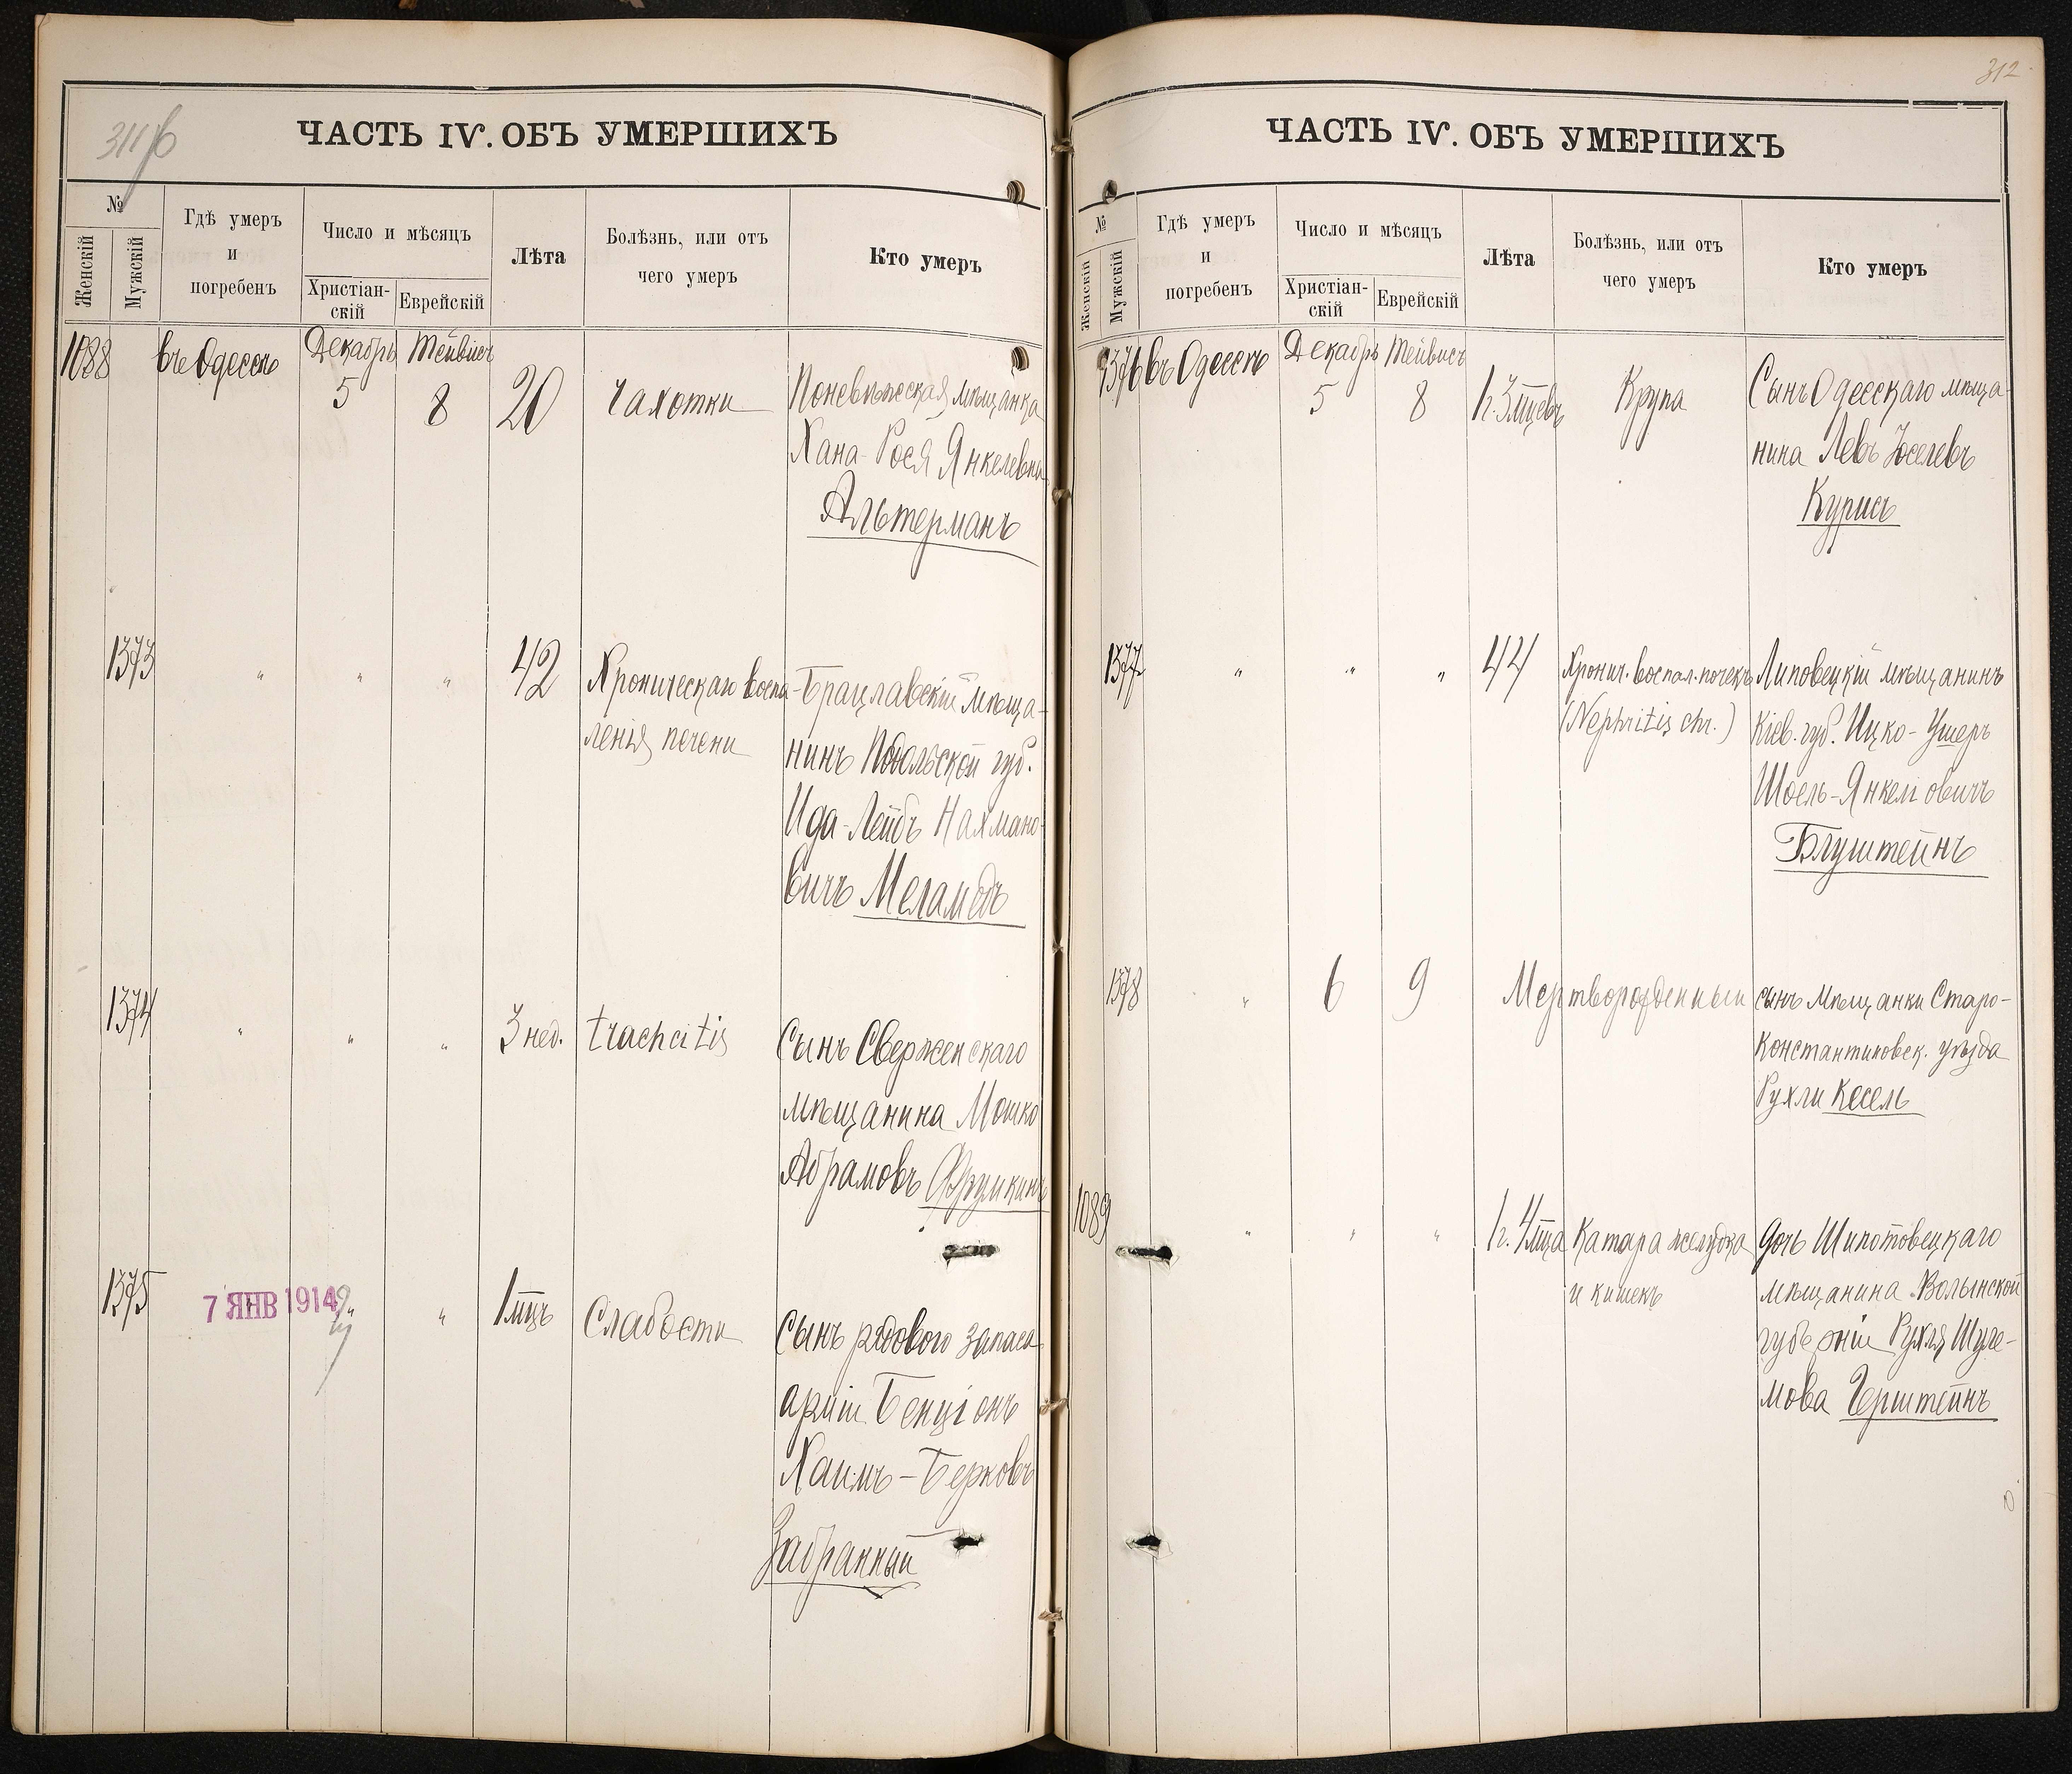 311 б
ЧАСТЬ IV. ОБЪ УМЕРШИХЪ
№
Женскій
Мужскій
Гдѣ умеръ
и
погребенъ
Число и мѣсяцъ
Христіан-
скій
Еврейскій
Лѣта
Болѣзнь, или отъ
чего умеръ
Кто умеръ
1088 въ Одессѣ Декабрь 5 Тейвисъ 8 20 Чахотки Поневѣжеская мѣщанка
Хана-Рося Янкелевна
Альтерманъ
1373 " " " 42 Хроническаго воспа- Брацлавскій мѣща-
ленія печени нинъ Подольской губ.
Ида-Лейбъ Нахмано-
вичъ Меламедъ
1374 " " " 3 нед. Сынъ Сверженскаго
мѣщанина Мошко
Абрамовъ Фрумкинъ
1375 7 ЯНВ 1914 " " 1 мцъ Слабости Сынъ рядового запаса
арміи Бенціонъ
Хаимъ-Берковъ
Забранный
312
ЧАСТЬ IV. ОБЪ УМЕРШИХЪ
№
Женскій
Мужскій
Гдѣ умеръ
и
погребенъ
Число и мѣсяцъ
Христіан-
скій
Еврейскій
Лѣта
Болѣзнь, или отъ
чего умеръ
Кто умеръ
1376 въ Одессѣ Декабрь 5 Тейвисъ 8 1 г. 3 мцевъ Крупа Сынъ Одесскаго мѣща-
нина Левъ Іоселевъ
Курисъ
1377 " " " 44 Хронич. воспал. почекъ Липовецкій мѣщанинъ
(Nephritis chr.) Кіев. губ. Ицко-Ушеръ
Шоель-Янкелiовичъ
Блуштейнъ
1378 " 6 9 Мертворожденный сынъ Мѣщанки Старо-
Константиновск. уѣзда
Рухли Кесель
1089 " " " 1 г. 4 мца Катара желудка дочь
и кишекъ мѣщанина Волынской
губерніи Рухля Шуле-
мова Герштейнъ